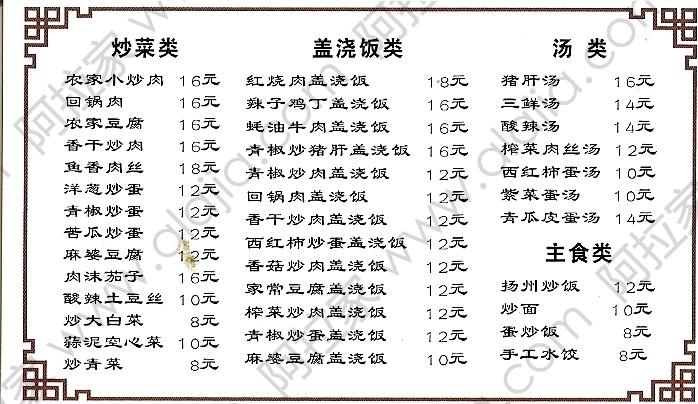 炒菜类
农家小炒肉 16元
回锅肉 16元
农家豆腐 16元
香干炒肉 16元
鱼香肉丝 18元
洋葱炒蛋 12元
青椒炒蛋 12元
苦瓜炒蛋 12元
麻婆豆腐 12元
肉沫茄子 16元
酸辣土豆丝 10元
炒大白菜 8元
蒜泥空心菜 10元
炒青菜 8元
盖浇饭类
红烧肉盖浇饭 18元
辣子鸡丁盖浇饭 16元
蚝油牛肉盖浇饭 16元
青椒炒猪肝盖浇饭 16元
青椒炒肉盖浇饭 12元
回锅肉盖浇饭 12元
香干炒肉盖浇饭 12元
西红柿炒蛋盖浇饭 12元
香菇炒肉盖浇饭 12元
家常豆腐盖浇饭 12元
榨菜炒肉盖浇饭 12元
青椒炒蛋盖浇饭 12元
麻婆豆腐盖浇饭 10元
汤 类
猪肝汤 16元
三鲜汤 14元
酸辣汤 14元
榨菜肉丝汤 12元
西红柿蛋汤 10元
紫菜蛋汤 10元
青瓜皮蛋汤 14元
主食类
扬州炒饭 12元
炒面 10元
蛋炒饭 8元
手工水饺 8元
阿拉家 www.alajia.com